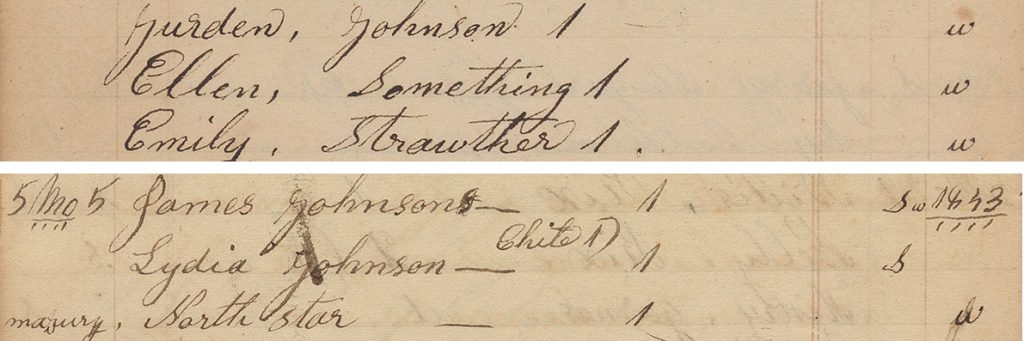 Jurden, Johnson 1 w
Ellen, Something 1 w
Emily, Strawther 1. w
5 Mo 5 James Johnson — 1 S w 1843
Chile 1)
Lydia Johnson — 1 S
North star — 1 w